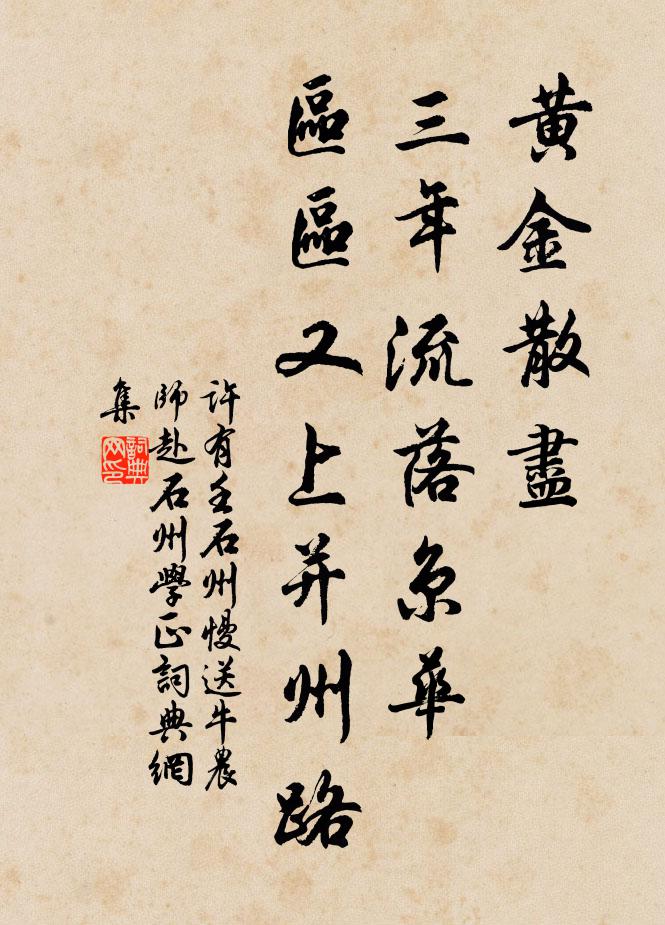 黃金散盡
三年流落京華
區區又上并州路
許有壬石州慢送牛農
師赴石州學正詞典網
集
詞典
網印